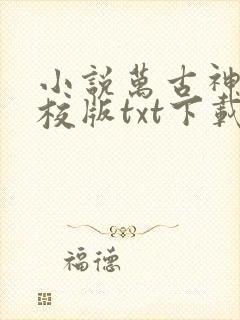 小說萬古神
校版txt下載
福德